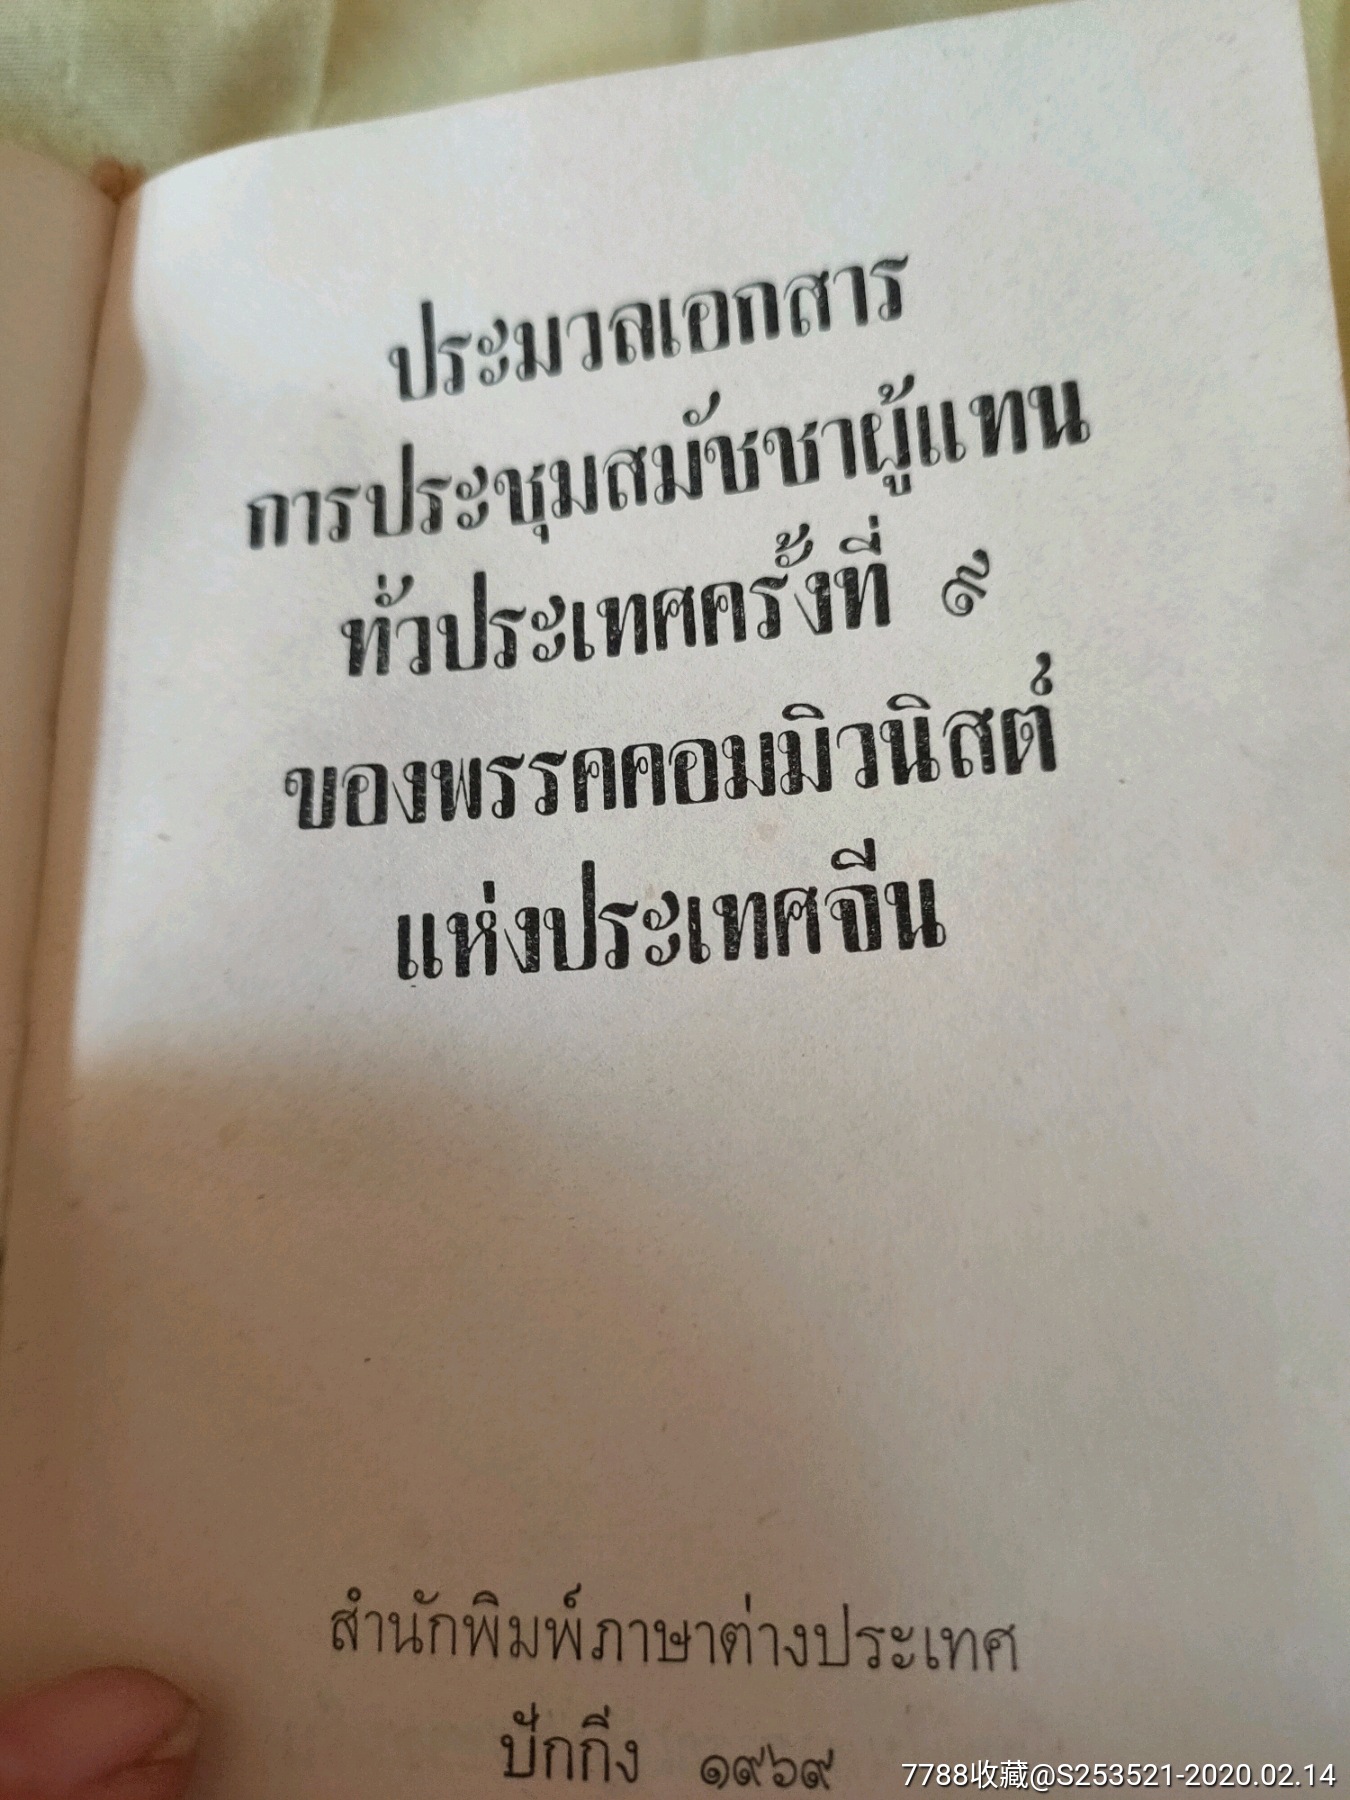 ประมวลเอกสาร
การประชุมสมัชชาผู้แทน
ทั่วประเทศครั้งที่ ๙
ของพรรคคอมมิวนิสต์
แห่งประเทศจีน
สำนักพิมพ์ภาษาต่างประเทศ
ปักกิ่ง ๑๙๖๙
7788收藏@S253521-2020.02.14